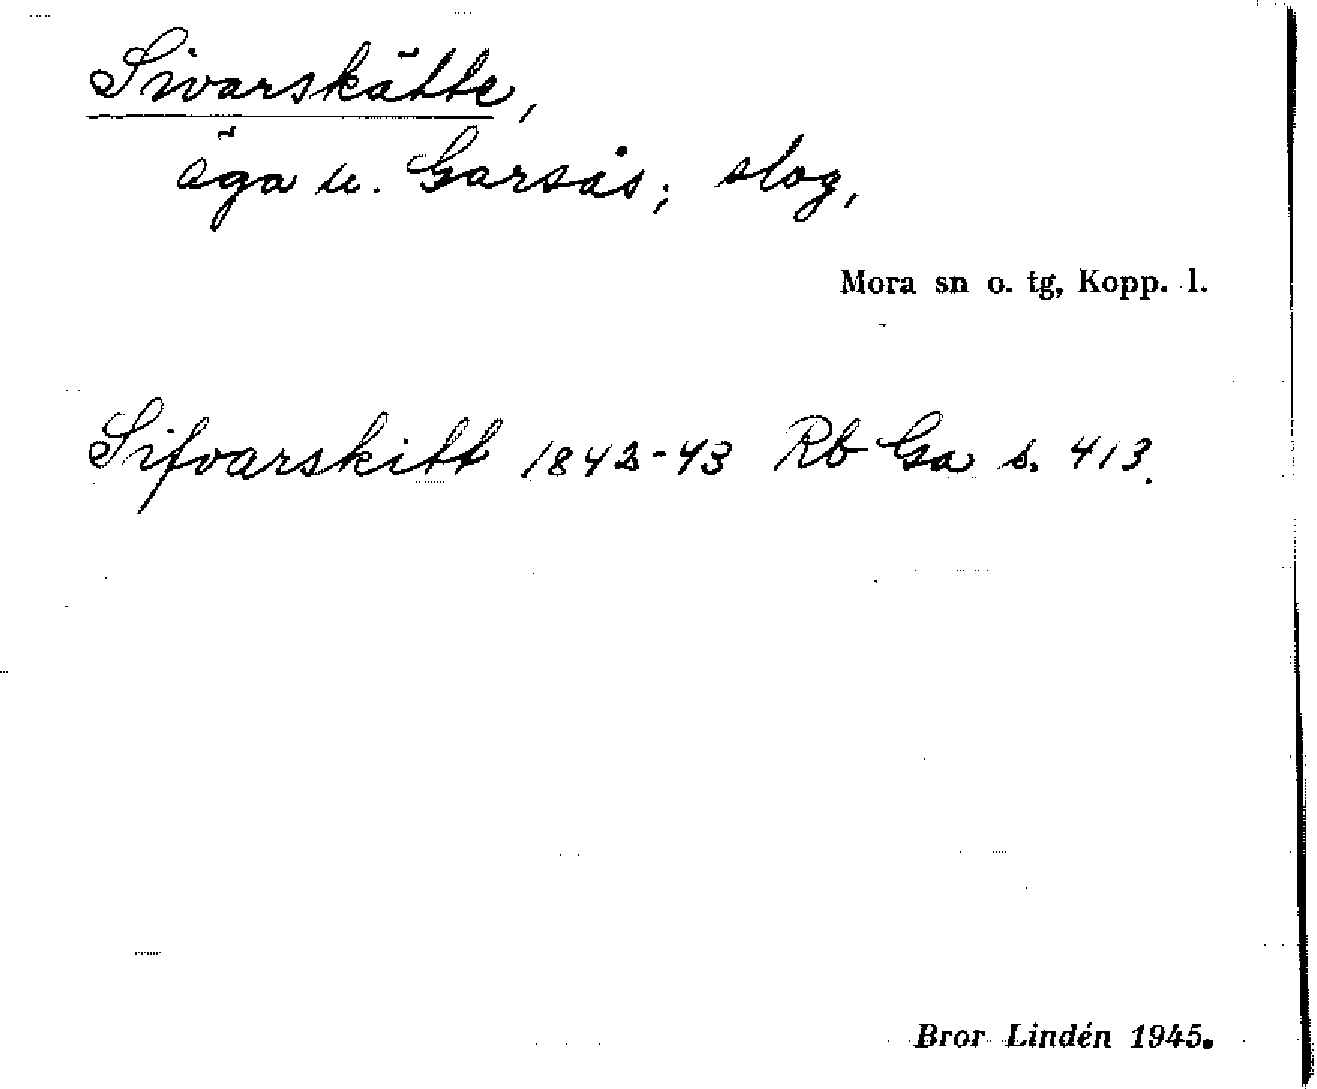 Sivarskätte,
äga u. Garsås; slog,
Mora sn o. tg, Kopp. l.
Sifvarskitt 1842-43 Rb Ga s. 413.
Bror Lindén 1945.